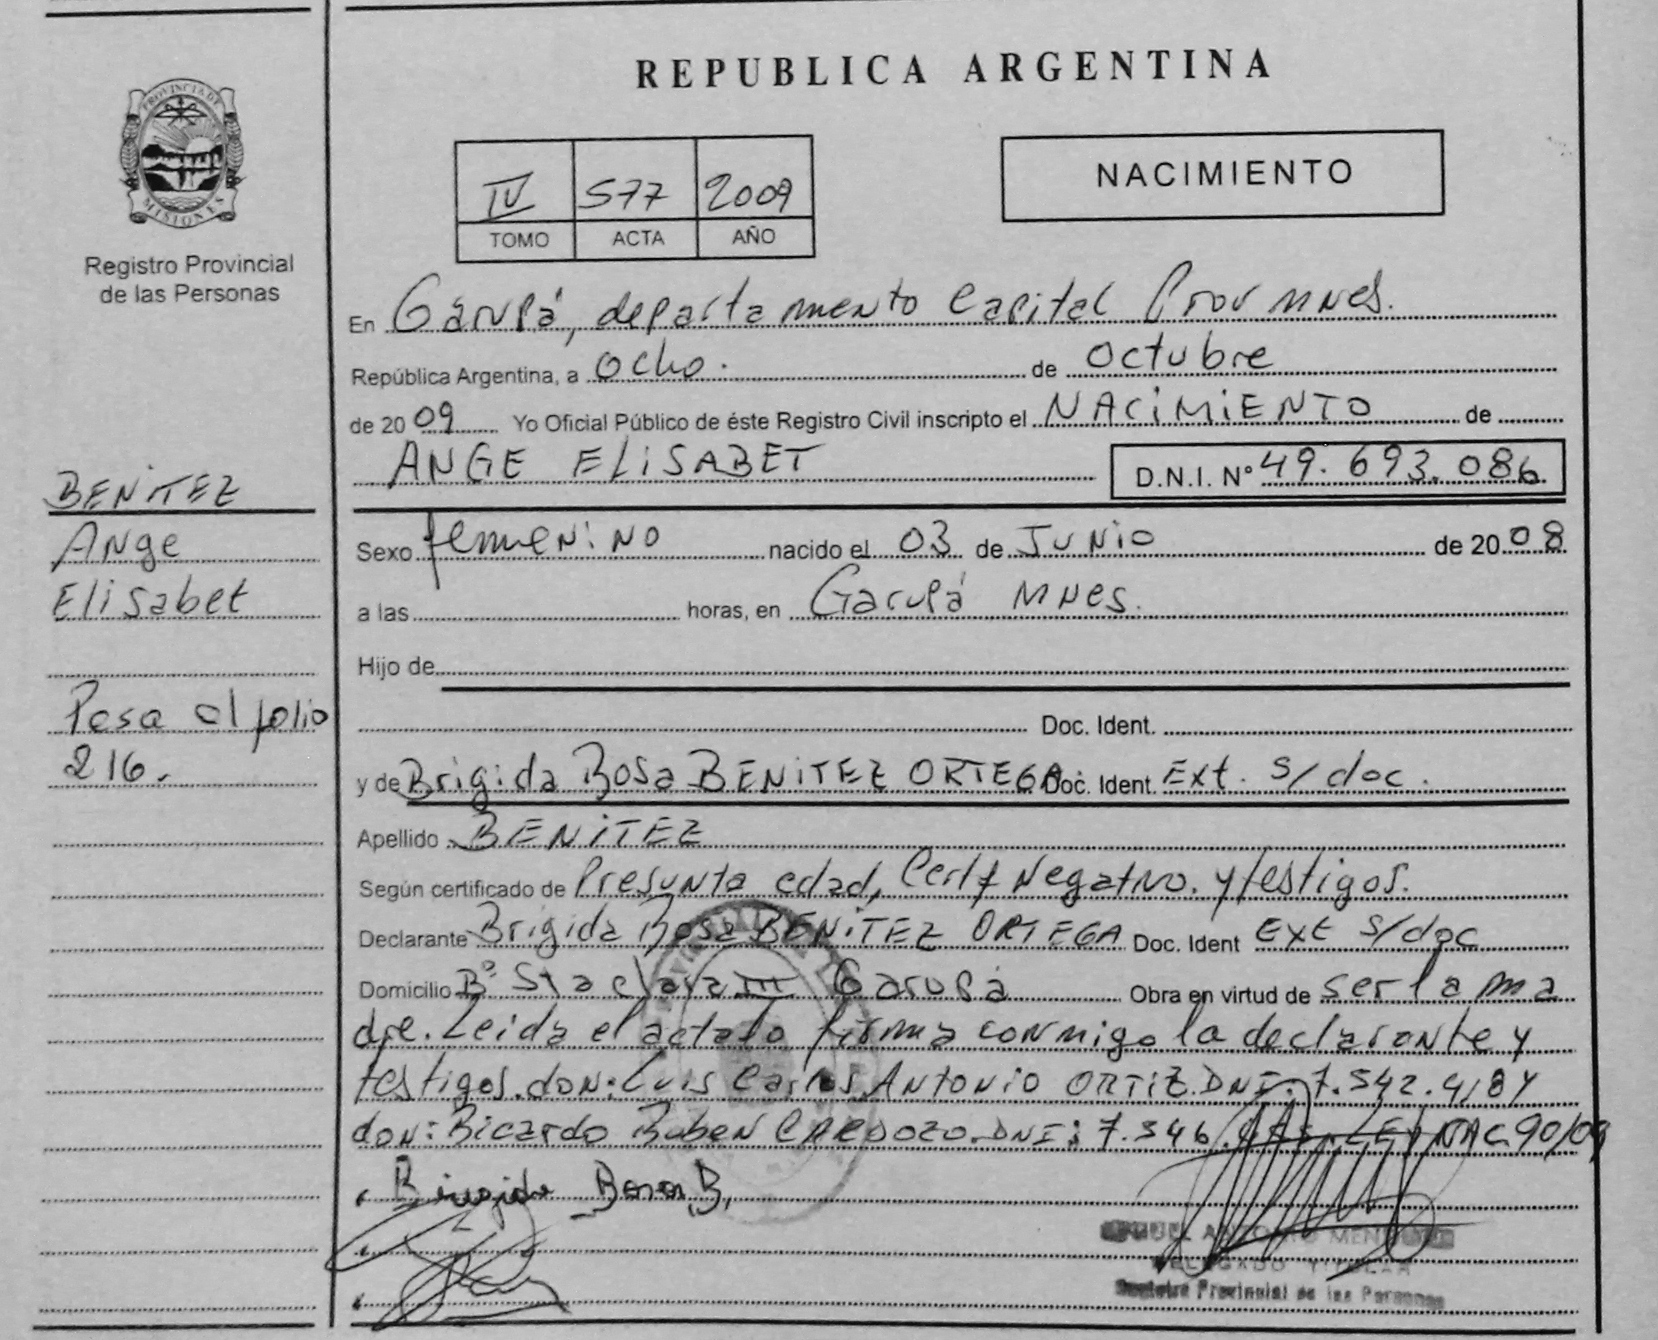 REPUBLICA ARGENTINA
PROVINCIA DE
MISIONES
Registro Provincial
de las Personas
NACIMIENTO
IV 577 2009
TOMO ACTA AÑO
En Garupá, departamento Capital Prov Mnes.
República Argentina, a ocho. de octubre
de 2009 Yo Oficial Público de éste Registro Civil inscripto el NACIMIENTO de
ANGE ELISABET D.N.I. Nº 49.693.086
BENITEZ
Ange
Elisabet
Pasa al folio
216.
Sexo femenino nacido el 03 de Junio de 2008
a las horas, en Garupá Mnes.
Hijo de
Doc. Ident.
y de Brigida Rosa BENITEZ ORTEGA. Doc. Ident. Ext. s/doc.
Apellido BENITEZ
Según certificado de Presunta edad, Certf Negativo. y testigos.
Declarante Brigida Rosa BENITEZ ORTEGA Doc. Ident Ext s/doc
Domicilio Bº Sta clara III Garupá Obra en virtud de ser la ma
dre. Leida el acta lo firma conmigo la declarante y
testigos. don: Luis Carlos Antonio ORTIZ. DNI: 7.542.418 y
don: Ricardo Ruben CARDOZO. DNI: 7.546. LEY NAC 90/09
Brigida Rosa B.
DELEGADO TITULAR
Registro Provincial de las Personas